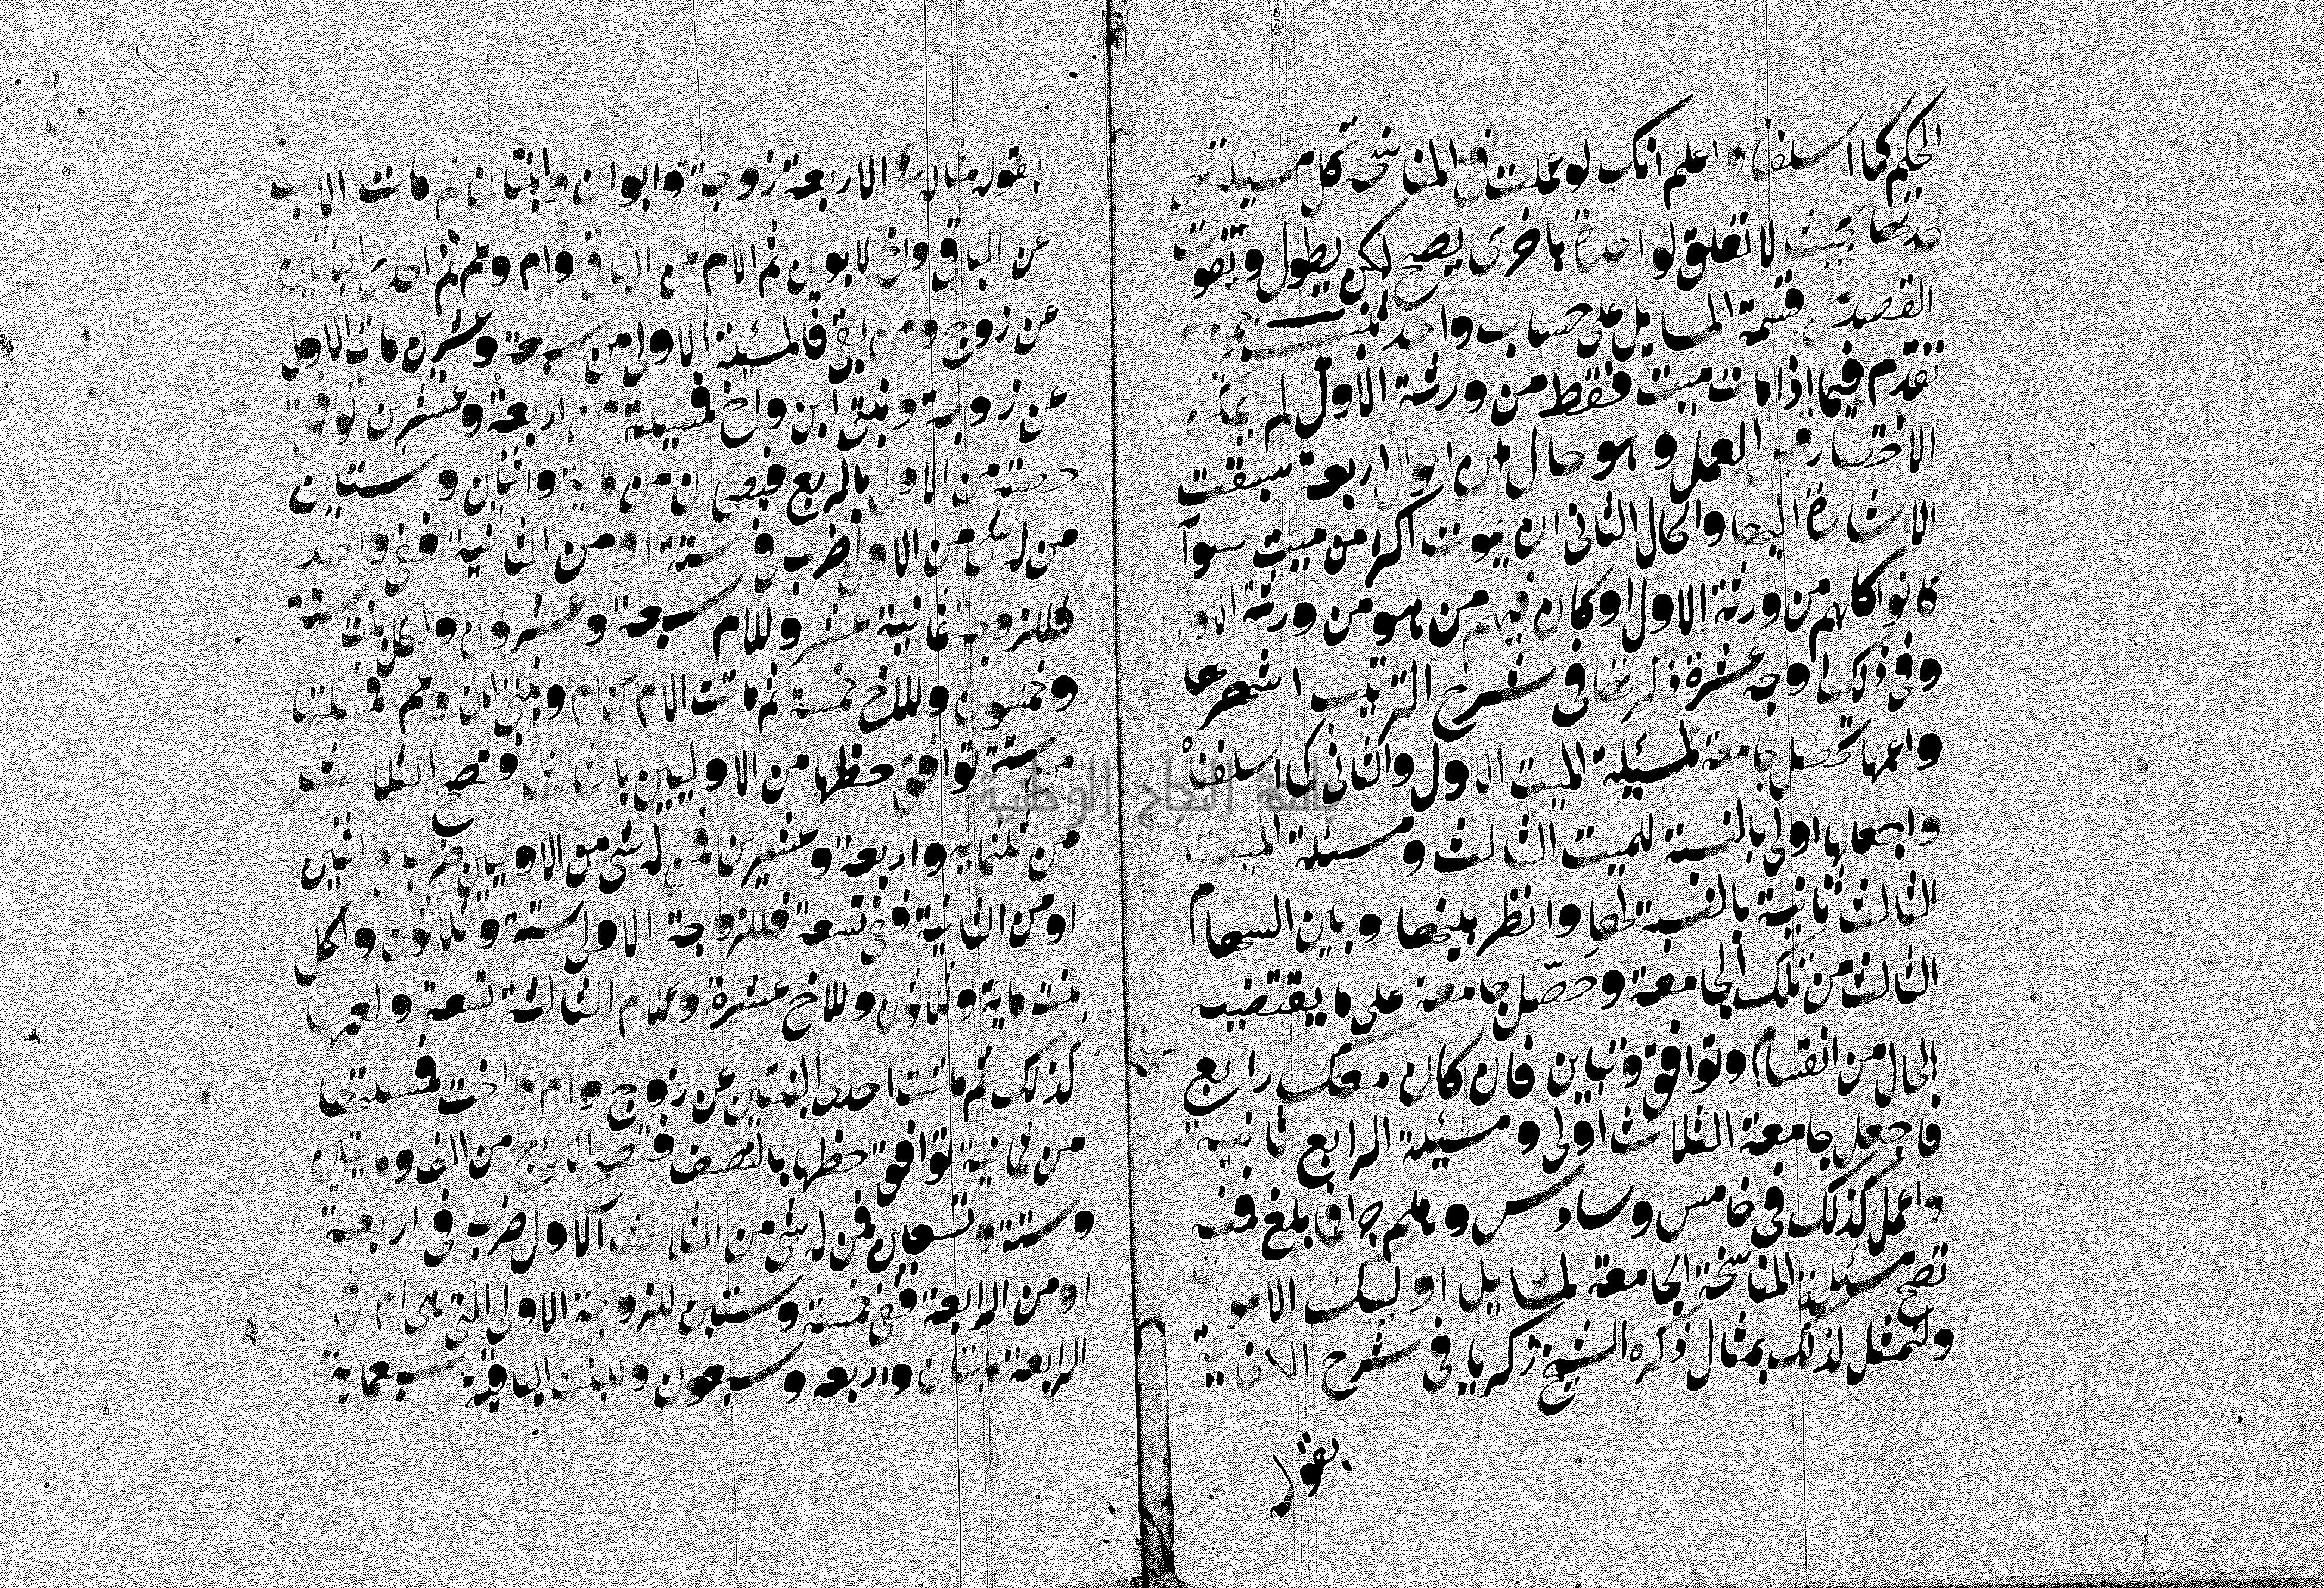 الحكيم كما اسلفنا واعلم انك لو عملت في المناسخة كل مسئلة على
حدتها بحيث لا تعلق لواحدة باخرى يصح لكن يطول وتفوت
القصد من قسمة المسايل على حساب واحد
تقدم فيما اذا مات ميت فقط من ورثة الاول لم يمكن
الاختصار قبل العمل وهو حال من احوال اربعة سبقت
الاشارة اليها والحال الثاني ان يموت اكثر من ميت سوآ
كانوا كلهم من ورثة الاول او كان فيهم من هو من ورثة الاول
وفي ذلك اوجه عشرة ذكرتها في شرح الترتيب اشهرها
واعمها تحصل جامعة لمسئلة الميت الاول والثاني كما اسلفنا
واجعلها اولى بالنسبة للميت الثالث ومسئلة الميت
الثالث ثانية بالنسبة لها وانظر بينها وبين السهام
الثالث من تلك الجامعة وحصّل جامعة على ما يقتضيه
الحال من انقسام وتوافق وتباين فان كان معك رابع
فاجعل جامعة الثلاث اولى ومسئلة الرابع ثانية
واعمل كذلك في خامس وسادس وهلم جرا فما بلغ فمنه
تصح مسئلة المناسخة الجامعة لمسايل اوليك الاموات
ولنمثل لذلك بمثال ذكره الشيخ زكريا في شرح الكفاية
بقوله
بقوله مثاله في الاربعة زوجة وابوان وابنتان ثم مات الاب
عن الباقي واخ لابوين ثم الام عن الباقي وام وعم ثم احدى البنتين
عن زوج ومن بقي فالمسئلة الاولى من سبعة وعشرين مات الاول
عن زوجة وبنتي ابن واخ فمسيلته من اربعة وعشرين توافق
حصته من الاولى بالربع فيصحان من ماية واثنين وستين
من له شي من الاولى ضرب في ستة او من الثانية ففي واحد
فللزوجة ثمانية عشر وللام سبعة وعشرون ولكل بنت ستة
وخمسون وللاخ خمسة ثم ماتت الام عن ام وبنتي ابن وعم فمسلتها
من ستة توافق حظها من الاوليين بالثلث فتصح الثلاث
من ثلثماية واربعة وعشرين فمن له شي من الاوليين ضرب في اثنين
او من الثانية ففي تسعة فللزوجة الاولى ستة وثلاثون ولكل
بنت ماية وثلاثون وللاخ عشرة وللام الثالثة تسعة ولعمها
كذلك ثم ماتت احدى البنتين عن زوج وام واخت فمسلتها
من ثمانية توافق حظها بالنصف فتصح الاربع من الف ومايتين
وستة وتسعين فمن له شي من الثلاث الاول ضرب في اربعة
او من الرابعة ففي خمسة وستين للزوجة الاولى التي هي ام في
الرابعة مايتان واربعه وسبعون وللبنت الباقية سبعماية
جامعة النجاح الوطنية